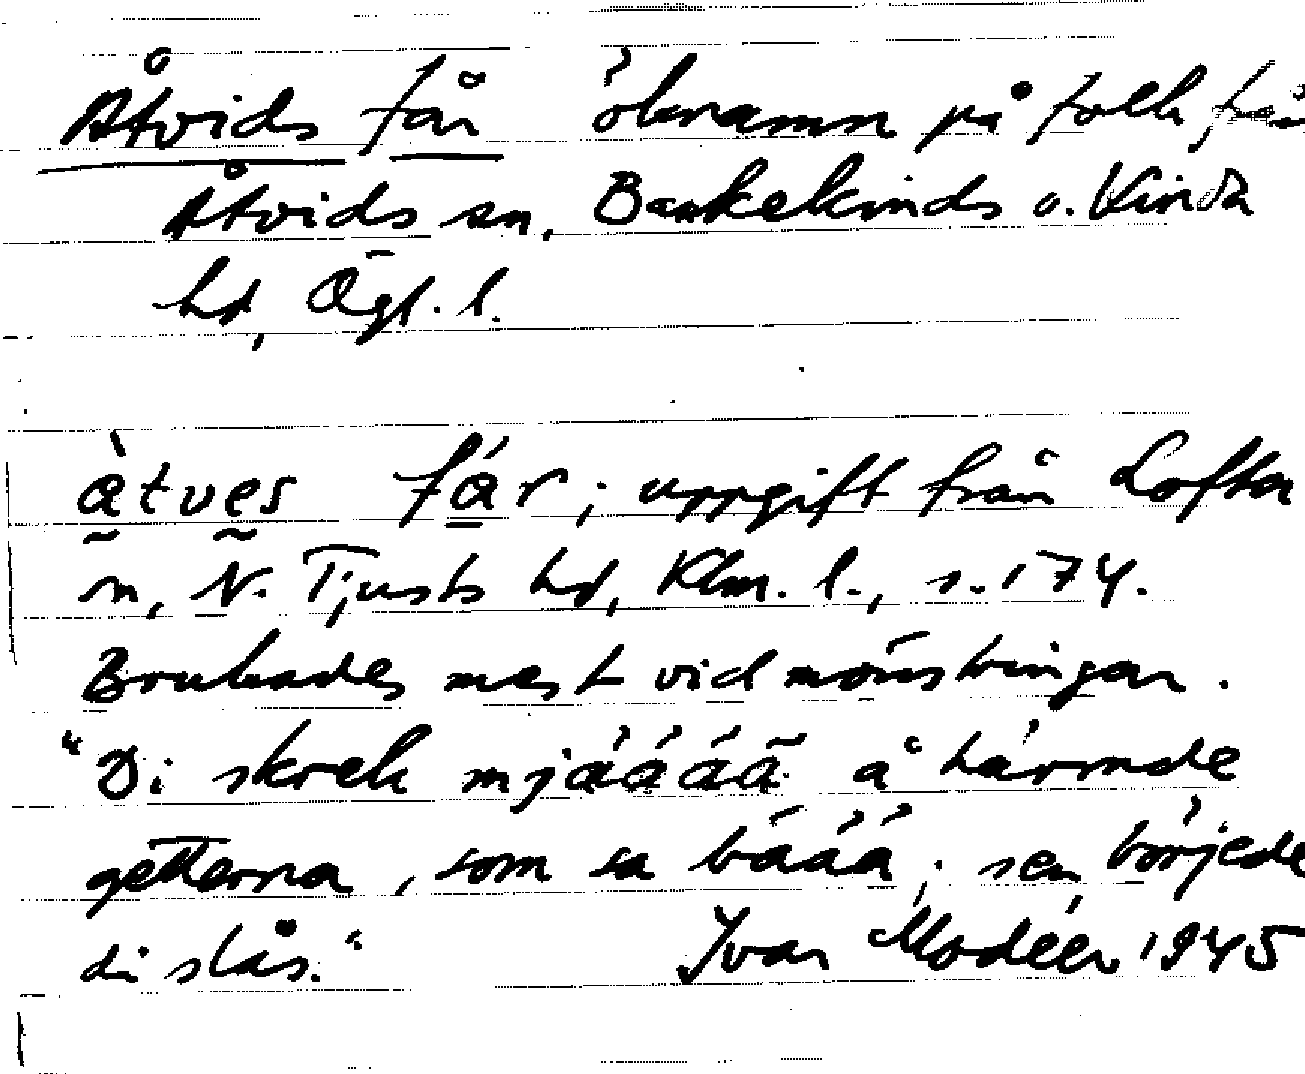 Åtvids får öknamn på folk från
Åtvids sn, Bankekinds o. Kinda
hd, Ögl. l.
àtves fár; uppgift från Lofta
sn, N. Tjusts hd, Klm. l., s. 174.
Brukades mest vid mönstringar.
"Di skrek mjääää å härmde
getterna, som sa bäää; sen börjede
di slås."
Ivar Modéer 1945